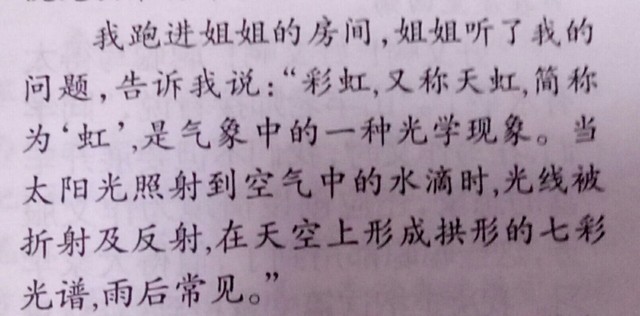 我跑进姐姐的房间,姐姐听了我的
问题,告诉我说:“彩虹,又称天虹,简称
为‘虹’,是气象中的一种光学现象。当
太阳光照射到空气中的水滴时,光线被
折射及反射,在天空上形成拱形的七彩
光谱,雨后常见。”